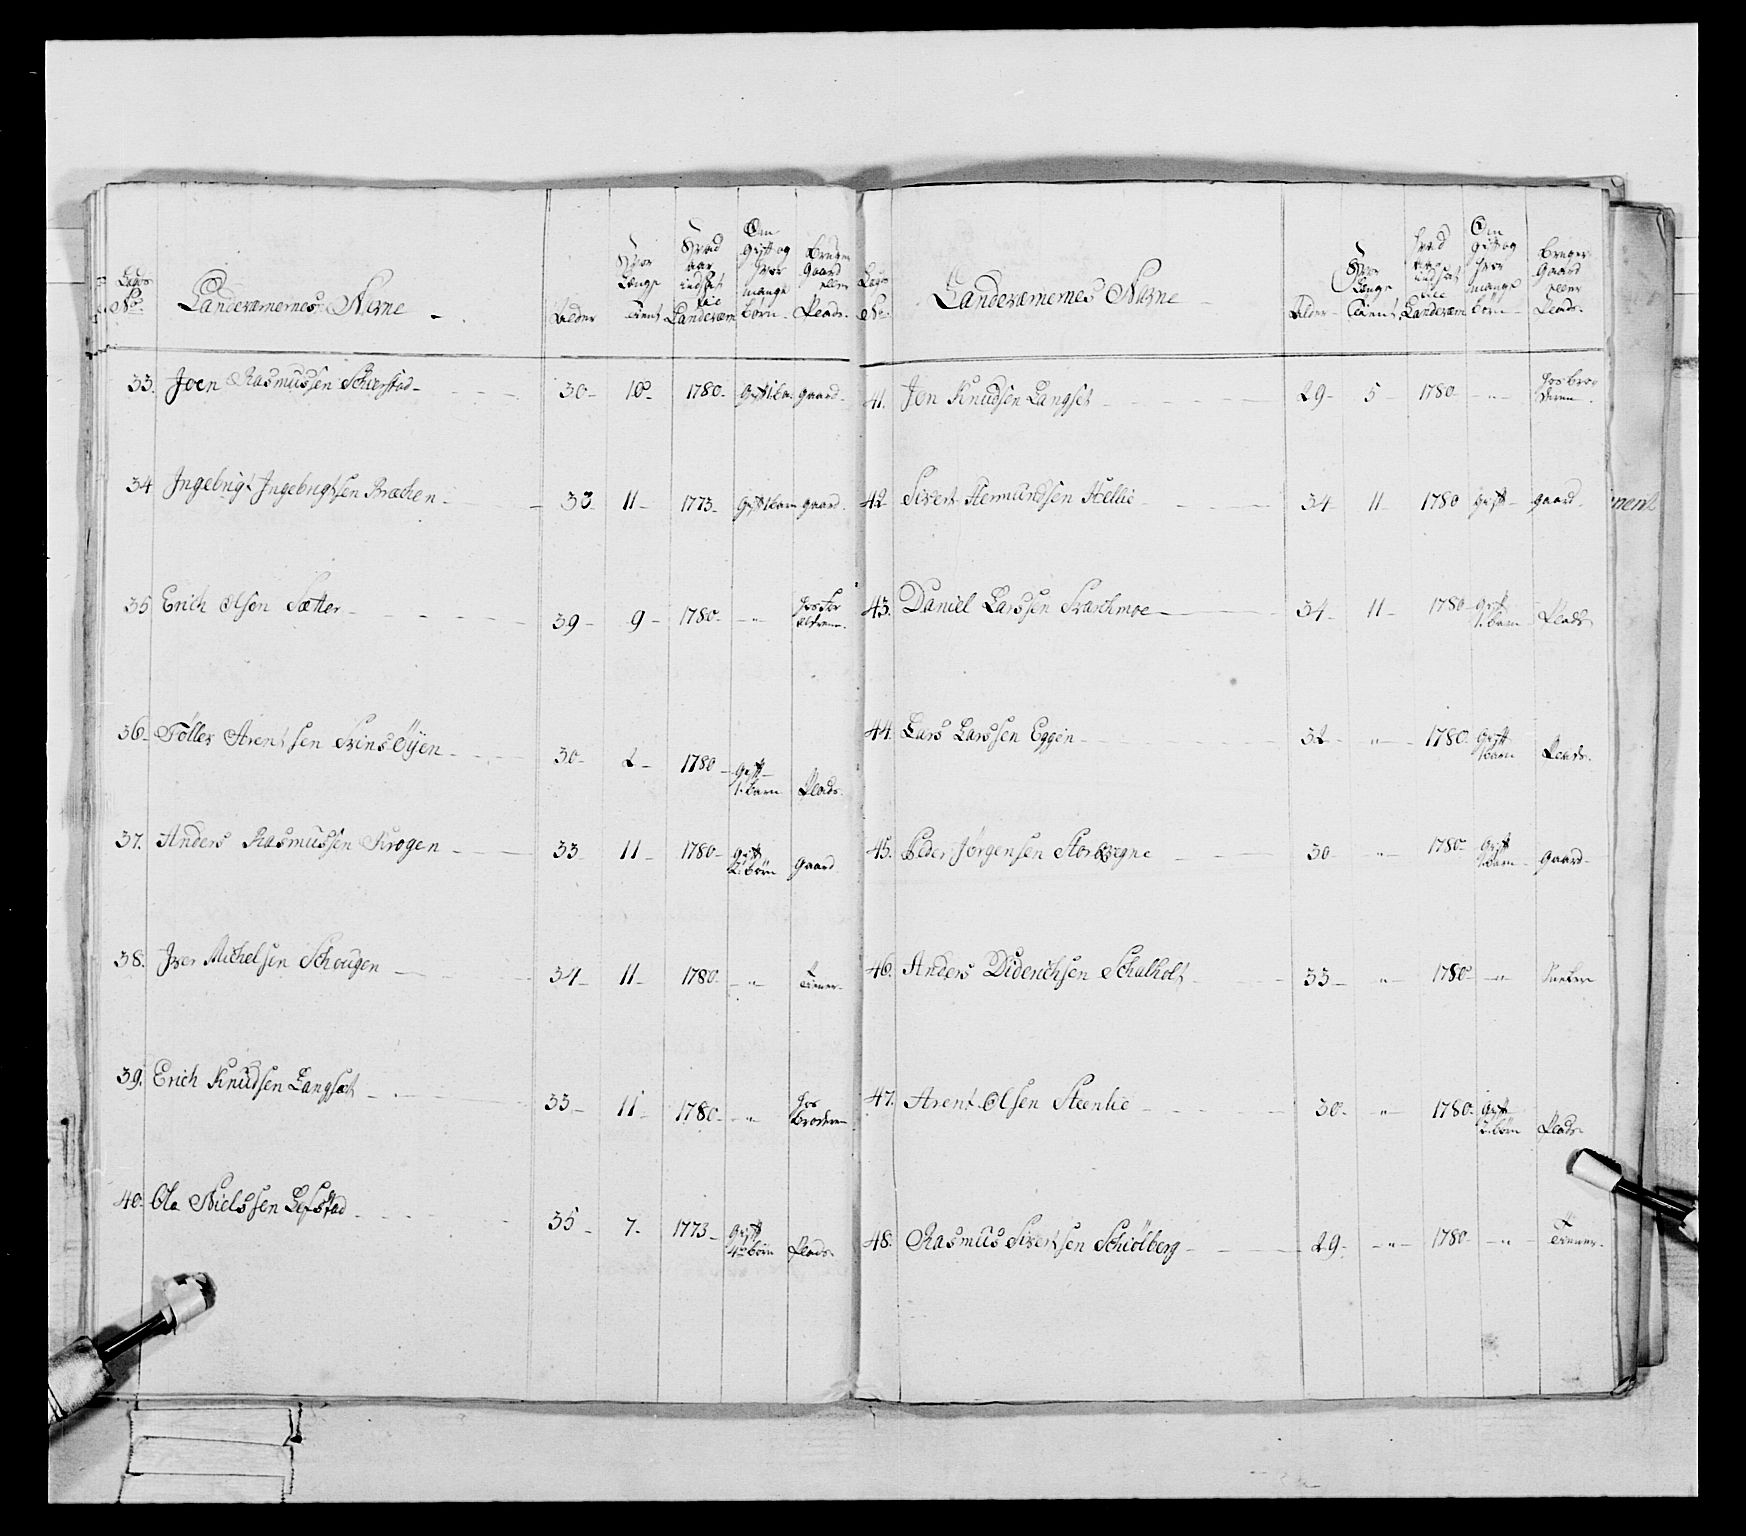 Landeværnernes Navne
Alder
Hvor Længe Tient
Hvad aar indsat til Landeværn
Om Gift og hvor mange Børn
Bruger Gaard eller Plads
33. Joen Rasmussen Schierstad 30 10 1780 Gift 1 Barn Gaard
34 Ingebrigt Ingebrigtsen Bræchen 33 11 1773 Gift 1 Barn Gaard
35 Erich Olsen Sætter 39 9 1780 " hos Forældrene
36 Töller Arentsen Svinsöyen 30 2 1780 Gift 1. Barn Plads
37. Anders Rasmussen Krogen 33 11 1780 Gift 2. Börn Gaard
38. Iver Michelsen Schougen 34 11 1780 " Tiener
39. Erich Knudsen Langsæt 33 11 1780 " hos Broderen
40. Ole Nielssen Lefstad 35 7 1773 Gift 4 Börn Plads
Landeværnernes Navne
Alder
Hvor Længe Tient
Hvad aar indsat til Landeværn
Om Gift og hvor mange Börn
Bruger Gaard eller Plads
41. Jon Knudsen Langset 29 5 1780 " hos Broderen
42 Sivert Hermundsen Hellie 34 11 1780 Gift Gaard
43. Daniel Larssen Svarchmoe 34 11 1780 Gift 1. Barn Plads
44. Lars Larssen Eggen 32 " 1780 Gift 1 Barn Plads
45. Peder Jörgensen Storvegne 30 " 1780 Gift 1. Barn Gaard
46. Anders Diderichsen Schalholt 33 " 1780 "
47. Arent Olsen Steenlie 30 " 1780 Gift 2. Börn Plads
48. Rasmus Sivertsen Schiölberg 29 " 1780 " Tiener